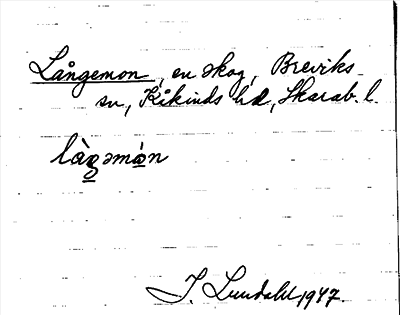 Långemon, en skog, Breviks
sn, Kåkinds hd, Skarab. l.
làŋ̲əmò̲n
I. Lundahl 1947.